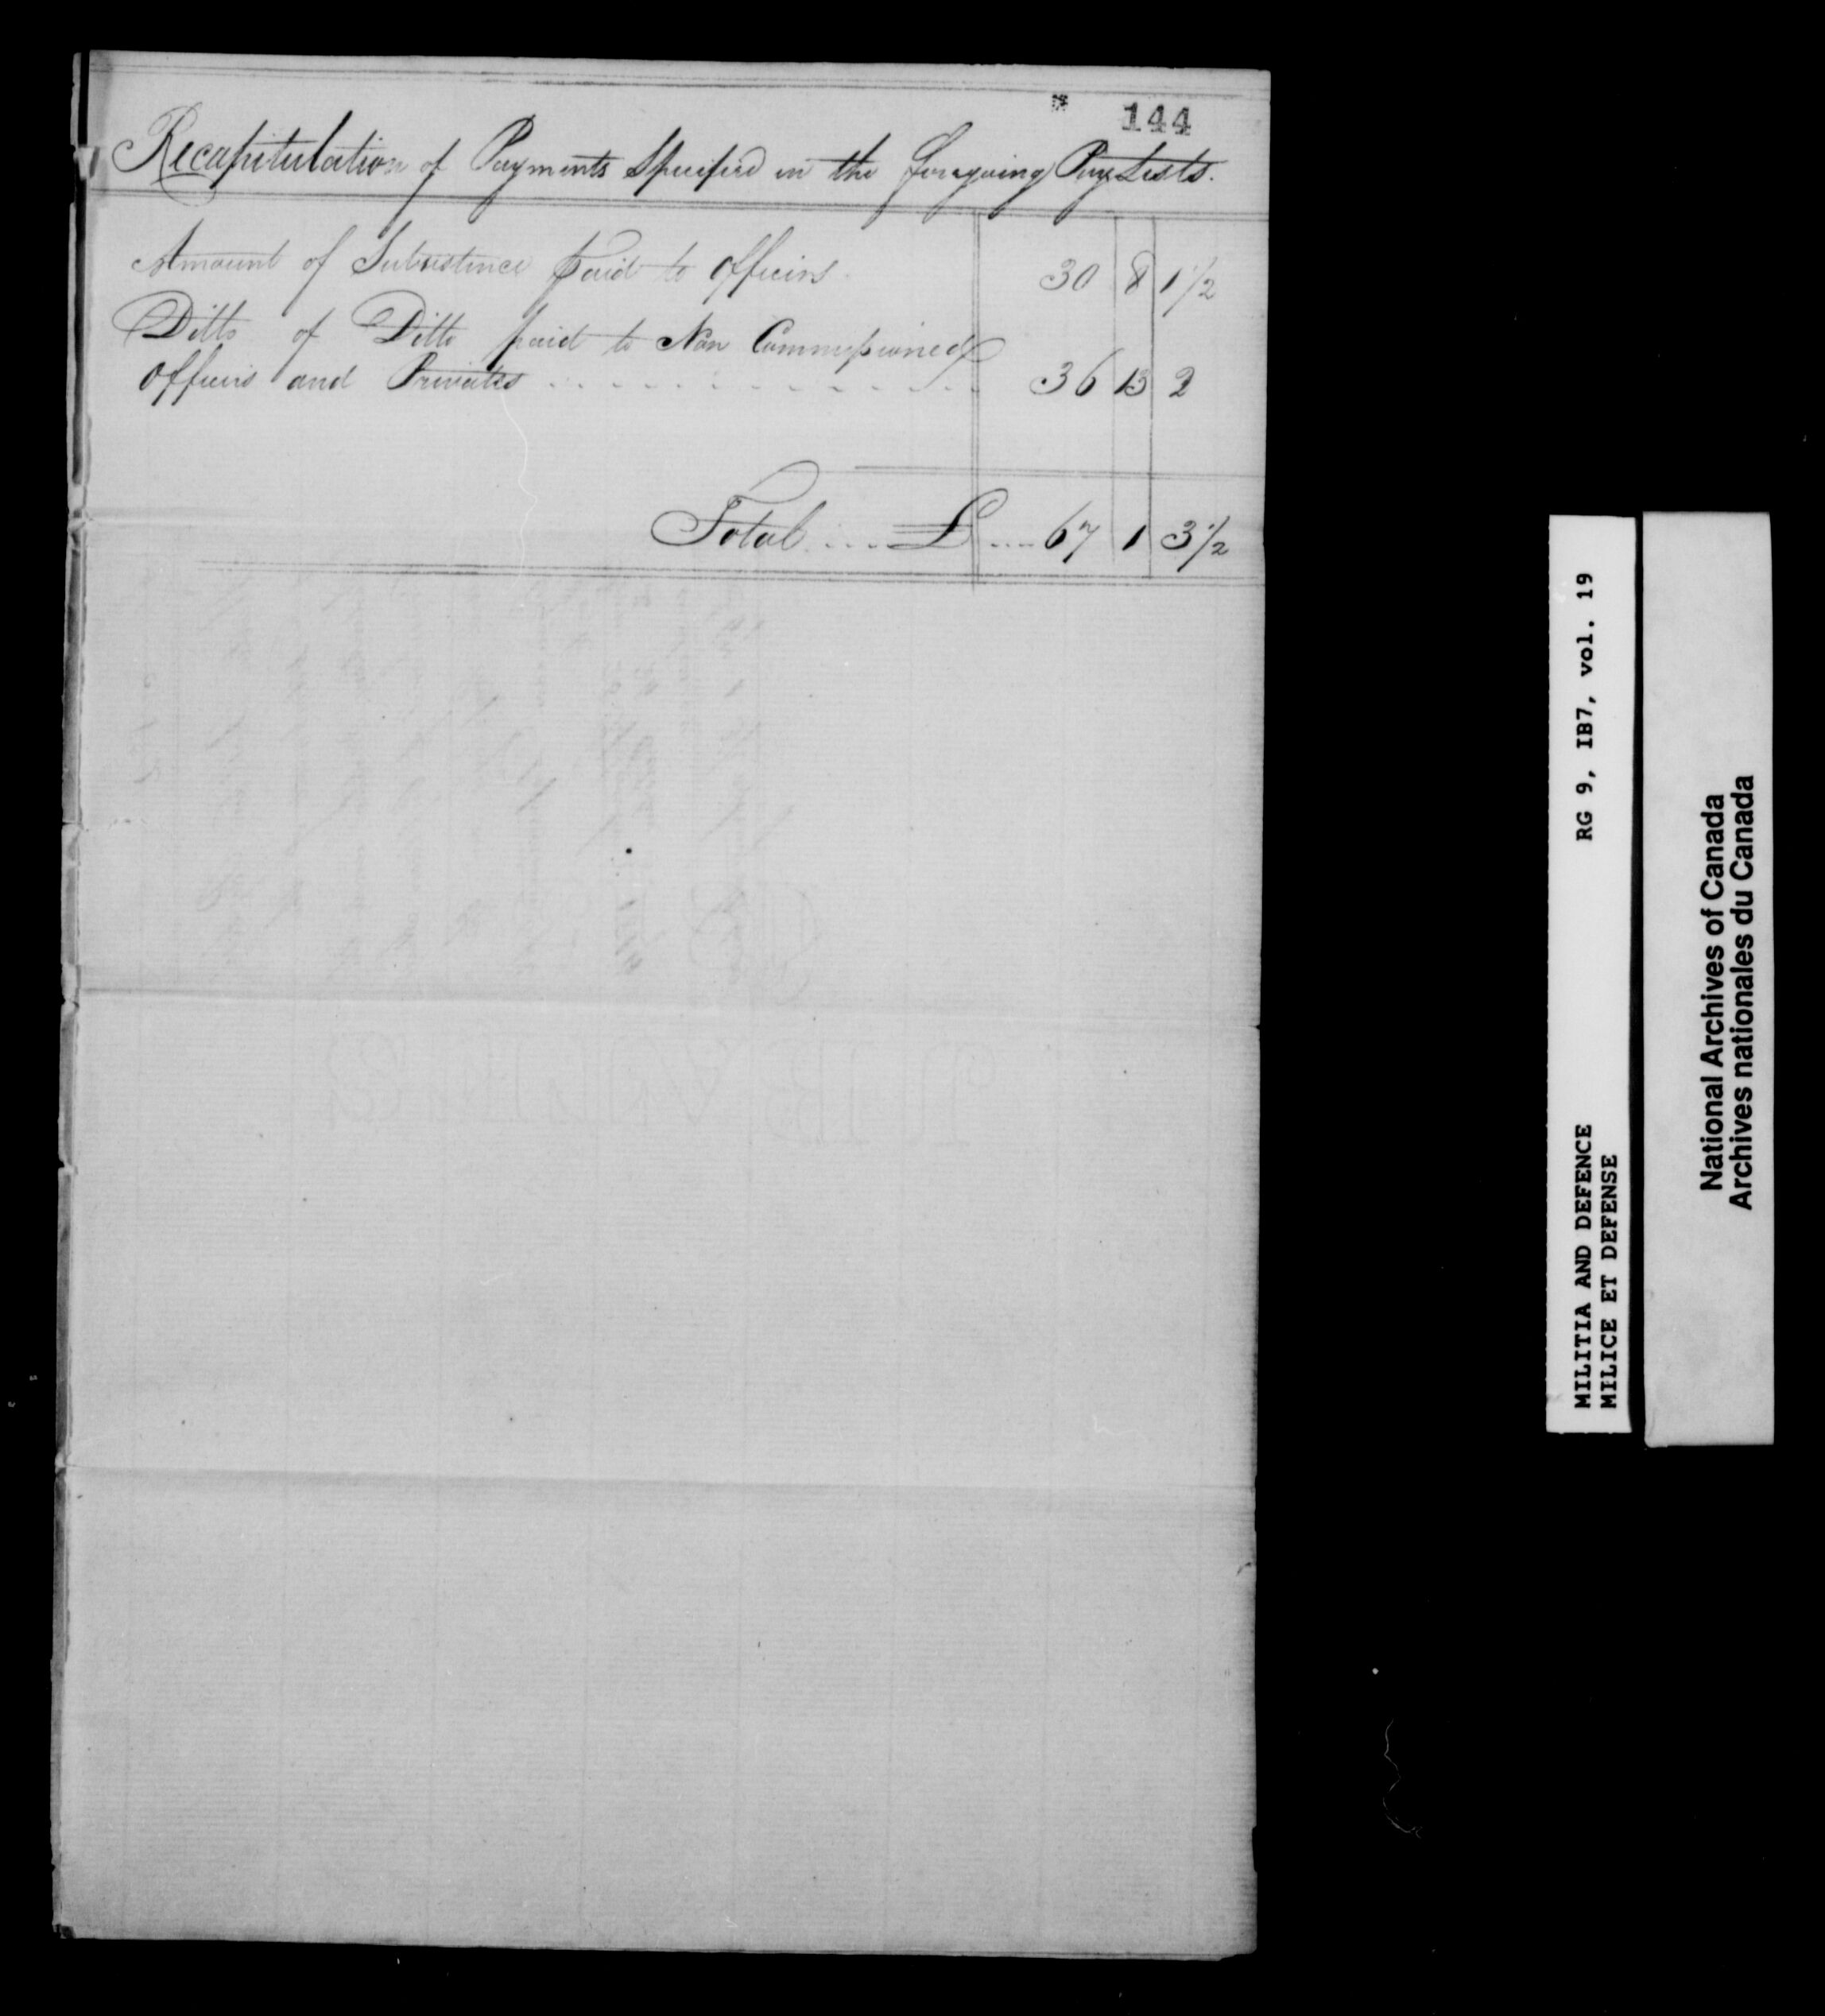 144
Recapitulation of Payments Specified in the foregoing Pay Lists.
Amount of Subsistence paid to officers 30 8 1 1/2
Ditto of Ditto paid to Non Commissioned
officers and Privates . . . . . . . . . . . . 36 13 2
Total .... £ .... 67 1 3 1/2
MILITIA AND DEFENCE RG 9, IB7, vol. 19
MILICE ET DEFENSE
National Archives of Canada
Archives nationales du Canada